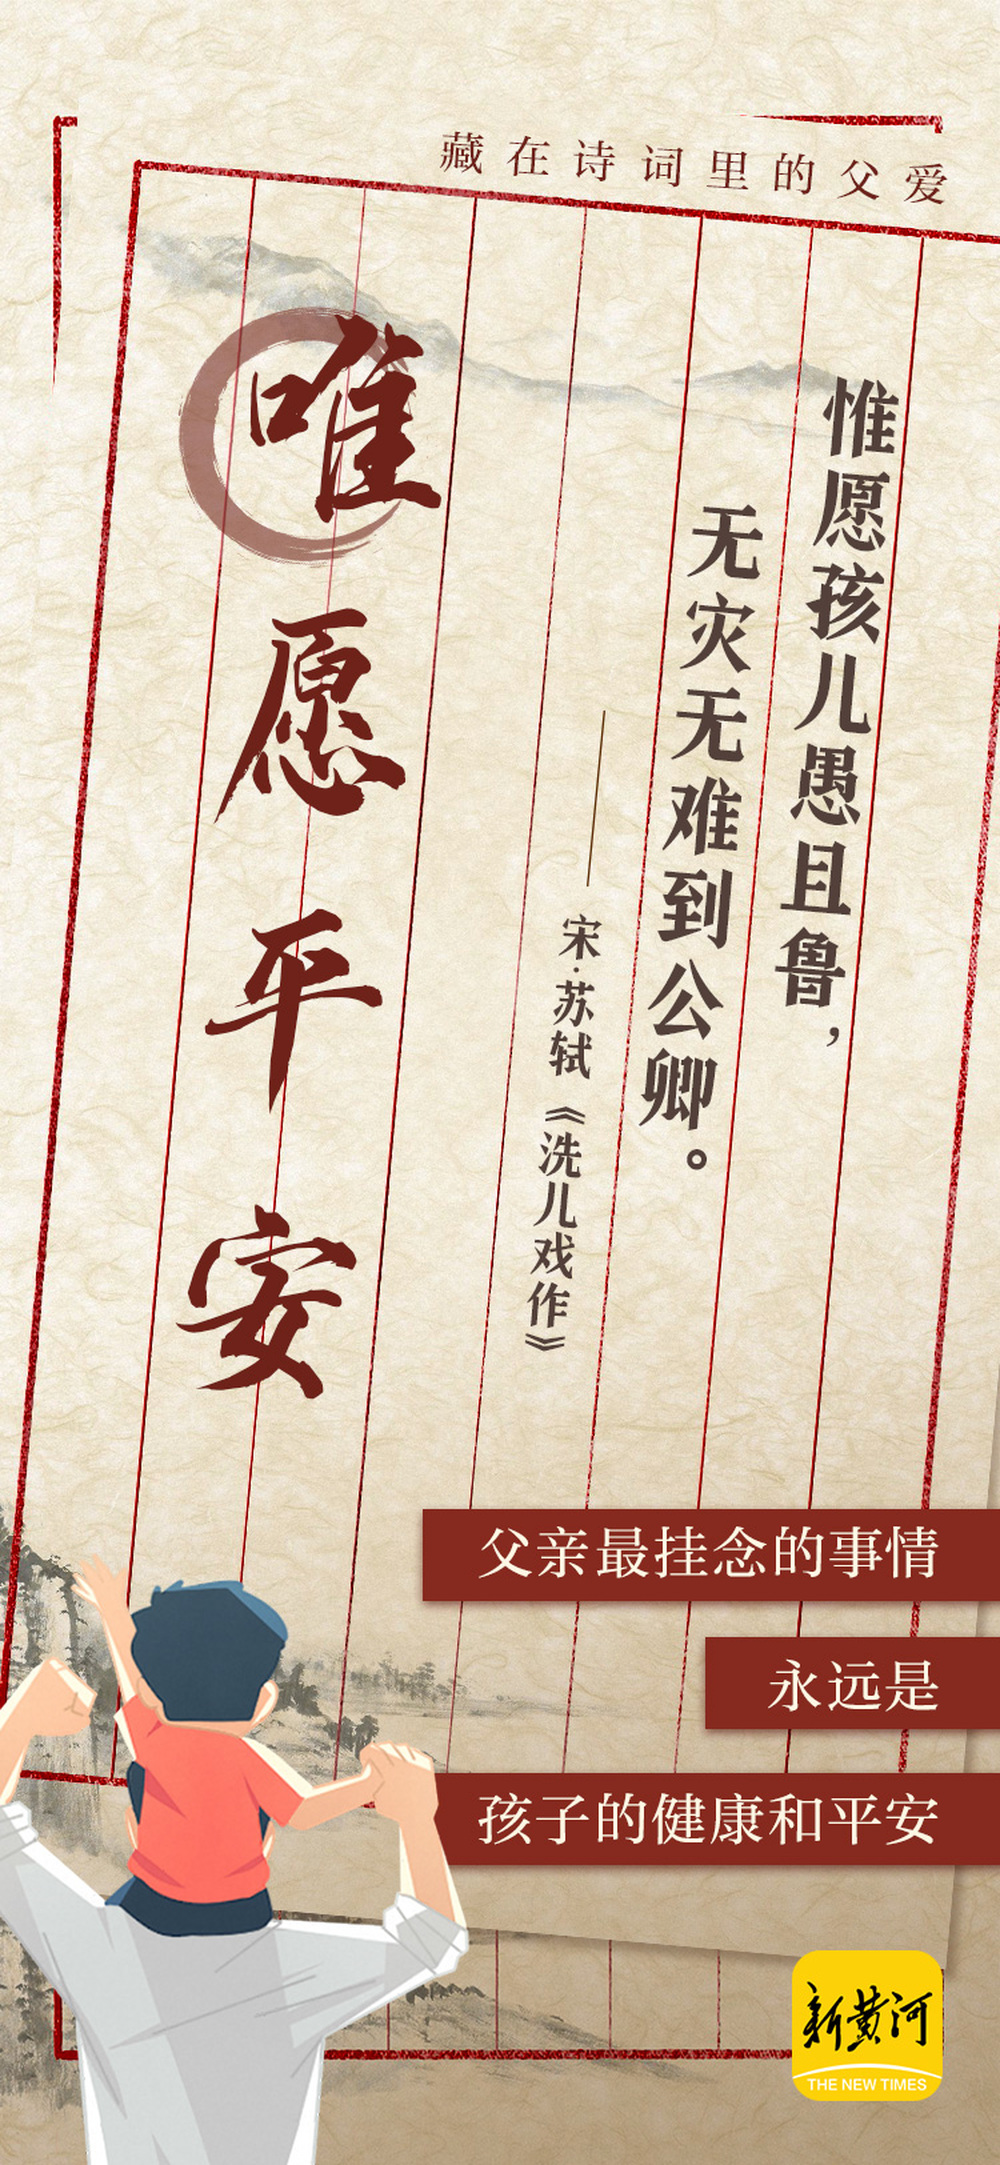 藏在诗词里的父爱
惟愿孩儿愚且鲁，
无灾无难到公卿。
——宋·苏轼《洗儿戏作》
唯愿平安
父亲最挂念的事情
永远是
孩子的健康和平安
新黄河
THE NEW TIMES